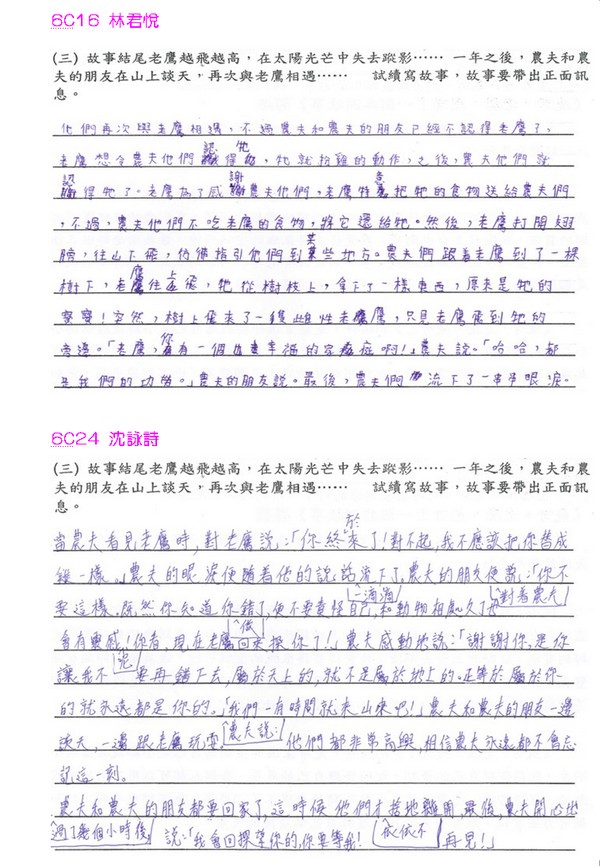 6C16 林君悅
(三) 故事結尾老鷹越飛越高，在太陽光芒中失去蹤影…… 一年之後，農夫和農
夫的朋友在山上談天，再次與老鷹相遇…… 試續寫故事，故事要帶出正面訊
息。
他們再次與老鷹相遇，不過農夫和農夫的朋友已經不認得老鷹了，
老鷹想令農夫他們認得牠，牠就扮雞的動作，之後，農夫他們就
認得牠了。老鷹為了感謝農夫他們，老鷹特意把牠的食物送給農夫們
，不過，農夫他們不吃老鷹的食物，將它還給牠。然後，老鷹打開翅
膀，往山下飛，仿佛指引他們到某些地方。農夫們跟着老鷹到了一棵
樹下，老鷹往上飛，牠從樹枝上，拿下了一樣東西，原來是牠的
寶寶！突然，樹上飛來了一隻雌性老鷹，只見老鷹飛到牠的
旁邊。「老鷹，你有一個幸福的家庭啊！」農夫說。「哈哈，都
是我們的功勞。」農夫的朋友說。最後，農夫們流下了一串串眼淚。
6C24 沈詠詩
(三) 故事結尾老鷹越飛越高，在太陽光芒中失去蹤影…… 一年之後，農夫和農
夫的朋友在山上談天，再次與老鷹相遇…… 試續寫故事，故事要帶出正面訊
息。
當農夫看見老鷹時，對老鷹說：「你終於來了！對不起，我不應該把你當成
雞一樣。」農夫的眼淚便隨着他的說話一滴滴流下了。農夫的朋友便對着農夫說：「你不
要這樣。既然你知道你錯了，便不要責怪自己，和動物相處久了也
會有靈感！你看，現在老鷹回來探你了！」農夫感動地說：「謝謝你，是你
讓我不要再錯下去，屬於天上的，就不是屬於地上的。正等於屬於你
的就永遠都是你的。」「我們一有時間就來山來吧！」農夫說：農夫和農夫的朋友一邊
談天，一邊跟老鷹玩耍。他們都非常高興，相信農夫永遠都不會忘
記這一刻。
過了幾個小時後，農夫和農夫的朋友都要回家了，這時候他們才依依不捨地離開，最後，農夫開心地
說：「我會回探望你的，你要等我！再見！」